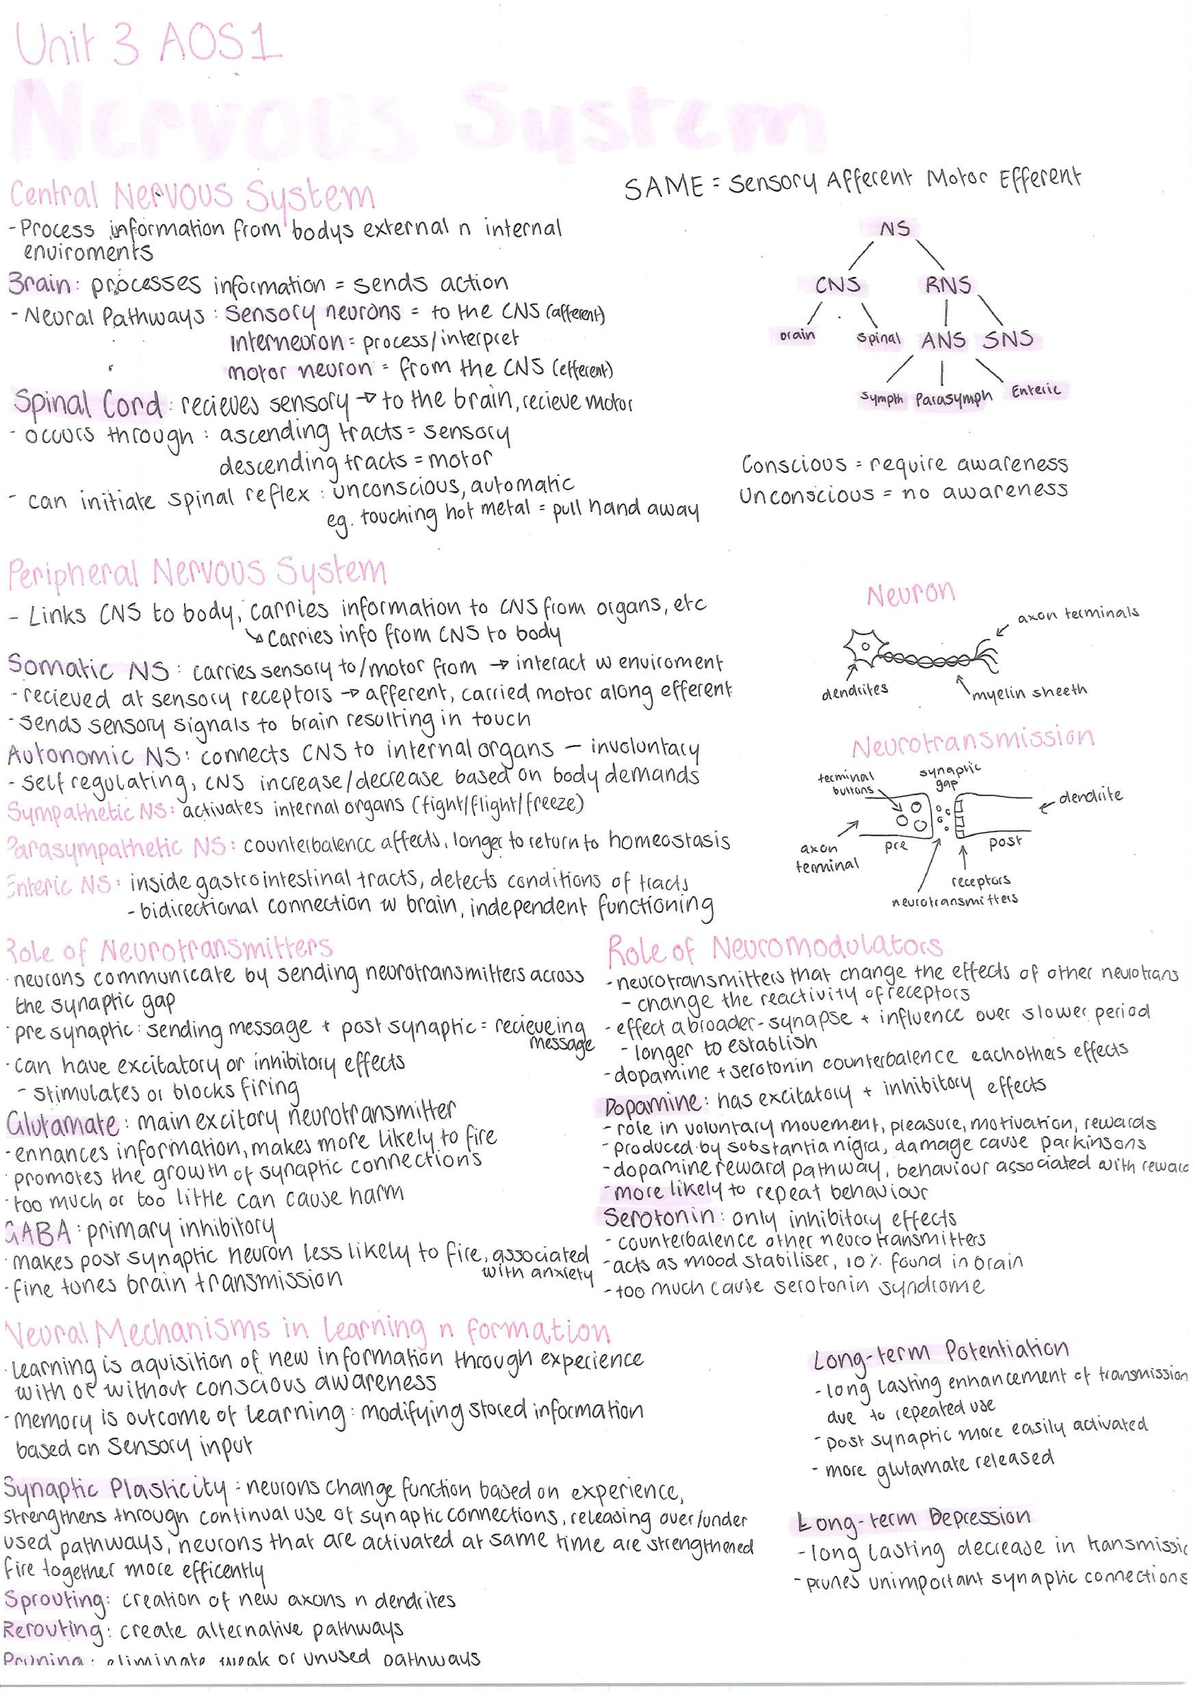 Unit 3 AOS1
Nervous System
Central Nervous System
- Process information from bodys external n internal
enviroments
Brain: processes information = sends action
- Neural Pathways: Sensory neurons = to the CNS (afferent)
interneuron = process/interpret
motor neuron = from the CNS (efferent)
Spinal Cord: recieves sensory → to the brain, recieve motor
- occurs through: ascending tracts = sensory
descending tracts = motor
- can initiate spinal reflex: unconscious, automatic
eg. touching hot metal = pull hand away
SAME = Sensory Afferent Motor Efferent
NS
CNS RNS
brain spinal ANS SNS
Symph Parasymph Enteric
Conscious = require awareness
Unconscious = no awareness
Peripheral Nervous System
- Links CNS to body, carries information to CNS from organs, etc
↳ Carries info from CNS to body
Somatic NS: carries sensory to/motor from → interact w enviroment
- recieved at sensory receptors → afferent, carried motor along efferent
- sends sensory signals to brain resulting in touch
Autonomic NS: connects CNS to internal organs - involuntary
- self regulating, CNS increase/decrease based on body demands
Sympathetic NS: activates internal organs (fight/flight/freeze)
Parasympathetic NS: counterbalence affects, longer to return to homeostasis
Enteric NS: inside gastrointestinal tracts, detects conditions of tracts
- bidirectional connection w brain, independent functioning
Neuron
axon terminals
dendrites
myelin sheeth
Neurotransmission
terminal
buttons
synaptic
gap
dendrite
axon
terminal
pre
post
receptors
neurotransmitters
Role of Neurotransmitters
· neurons communicate by sending neurotransmitters across
the synaptic gap
· pre synaptic: sending message + post synaptic = recieveing
message
· can have excitatory or inhibitory effects
- stimulates or blocks firing
Glutamate: main excitory neurotransmitter
- enhances information, makes more likely to fire
· promotes the growth of synaptic connections
· too much or too little can cause harm
GABA: primary inhibitory
· makes post synaptic neuron less likely to fire, associated
with anxiety
· fine tunes brain transmission
Role of Neuromodulators
- neurotransmitters that change the effects of other neurotrans
- change the reactivity of receptors
- effect a broader-synapse + influence over slower period
- longer to establish
- dopamine + serotonin counterbalence eachothers effects
Dopamine: has excitatory + inhibitory effects
- role in voluntary movement, pleasure, motivation, rewards
- produced by substantia nigra, damage cause parkinsons
- dopamine reward pathway, behaviour associated with reward
- more likely to repeat behaviour
Serotonin: only inhibitory effects
- counterbalence other neurotransmitters
- acts as mood stabiliser, 10% found in brain
- too much cause serotonin syndrome
Neural Mechanisms in learning n formation
· learning is aquisition of new information through experience
with or without conscious awareness
· memory is outcome of learning: modifying stored information
based on sensory input
Synaptic Plasticity: neurons change function based on experience,
strengthens through continual use of synaptic connections, releasing over/under
used pathways, neurons that are activated at same time are strengthened
fire together more efficently
Sprouting: creation of new axons n dendrites
Rerouting: create alternative pathways
Pruning: eliminate weak or unused pathways
Long-term Potentiation
- long lasting enhancement of transmission
due to repeated use
- post synaptic more easily activated
- more glutamate released
Long-term Depression
- long lasting decrease in transmissio
- prunes unimportant synaptic connections